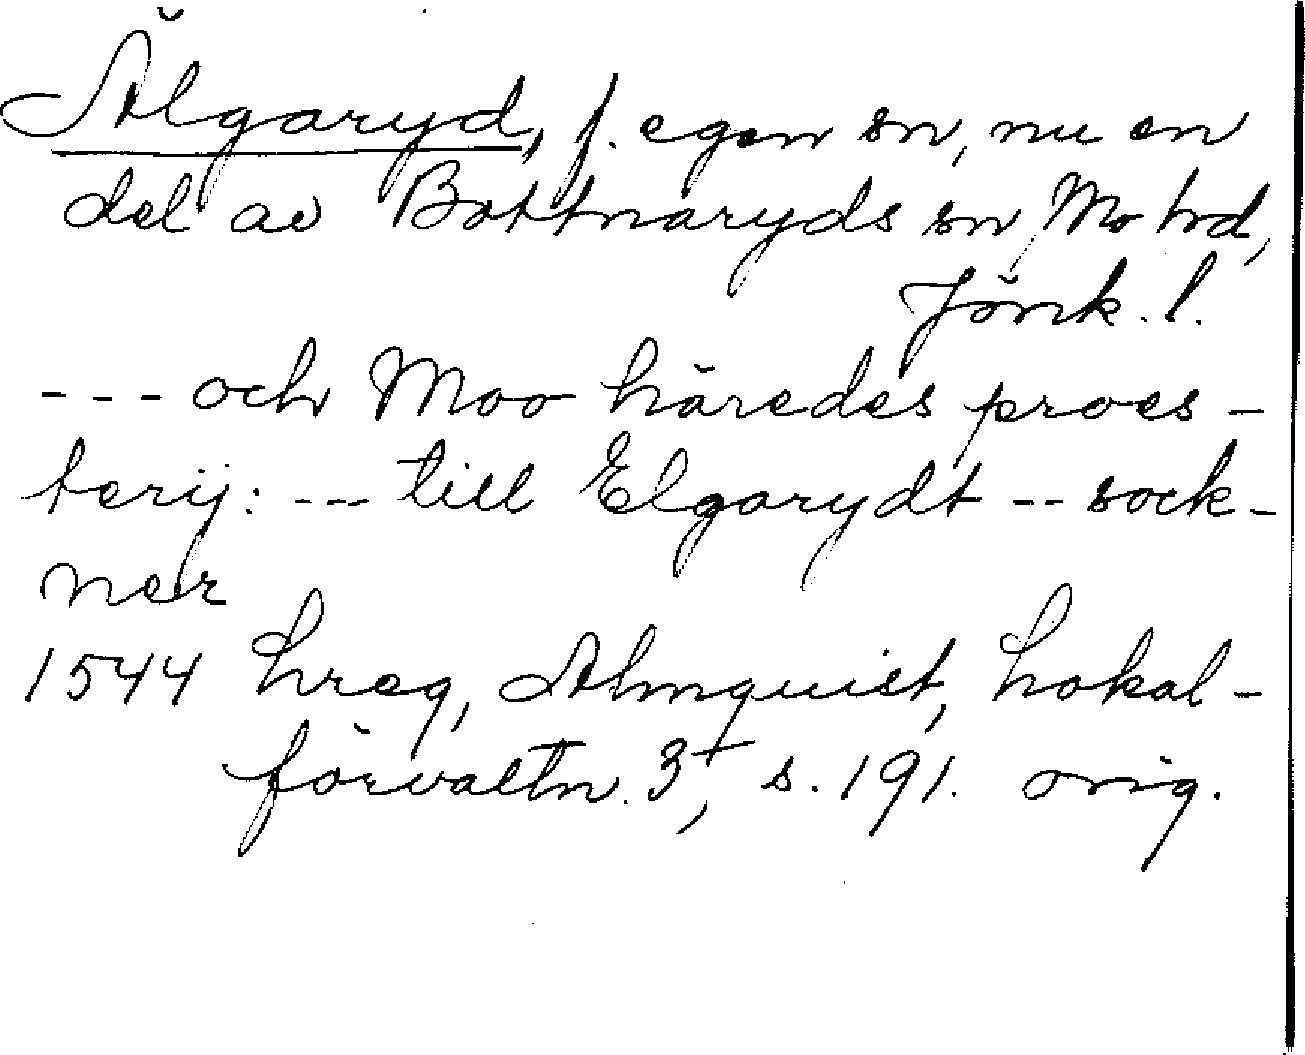 Älgaryd, f. egen sn, nu en
del av Bottnaryds sn, Mo hd,
Jönk. l.
--- och Moo häredes proes-
terij: --- till Elgarydt -- sock-
ner
1544 hreg, Almquist, Lokal-
förvaltn. 3, s. 191. orig.